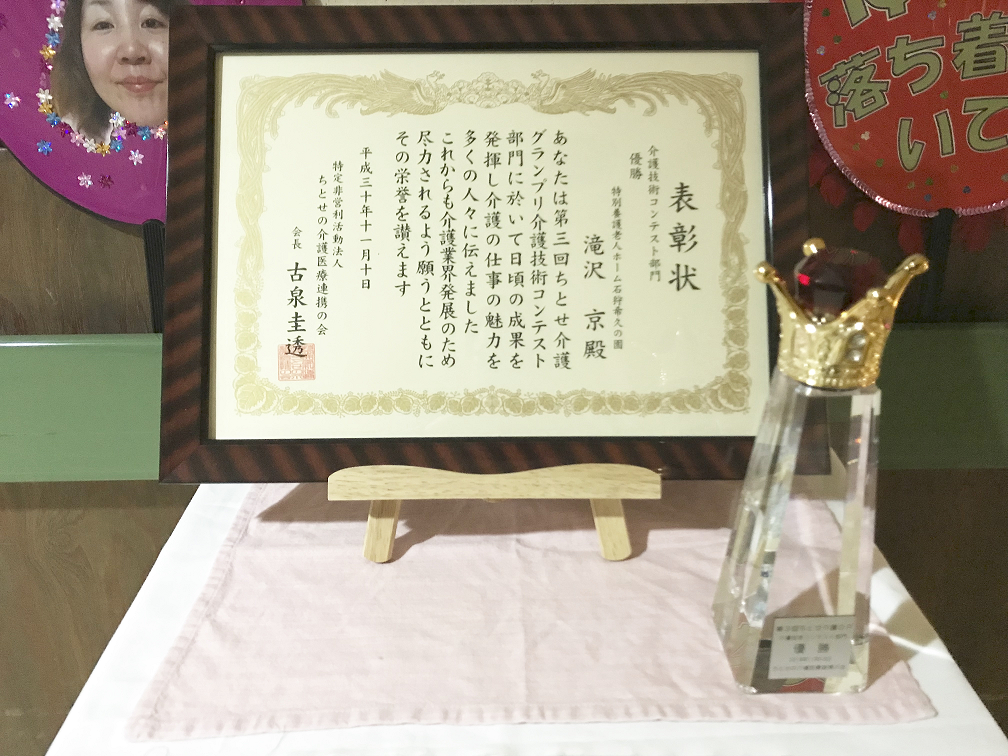 表彰状
介護技術コンテスト部門
優勝
特別養護老人ホーム石狩希久の園
滝沢 京殿
あなたは第三回ちとせ介護
グランプリ介護技術コンテスト
部門に於いて日頃の成果を
発揮し介護の仕事の魅力を
多くの人々に伝えました
これからも介護業界発展のため
尽力されるよう願うとともに
その栄誉を讃えます
平成三十年十一月十日
特定非営利活動法人
ちとせの介護医療連携の会
会長 古泉圭透
落ち着
いて
優勝